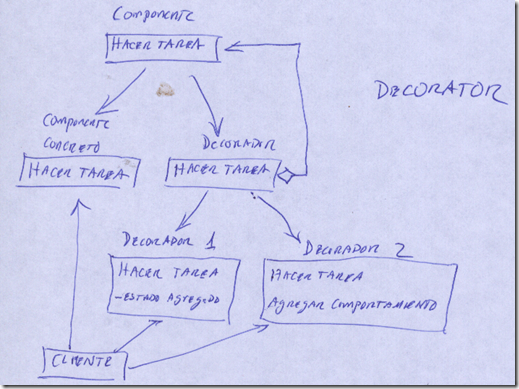 Componente
HACER TAREA
DECORATOR
Componente
CONCRETO
HACER TAREA
DECORADOR
HACER TAREA
DECORADOR 1
HACER TAREA
-ESTADO AGREGADO
DECORADOR 2
HACER TAREA
AGREGAR COMPORTAMIENTO
CLIENTE